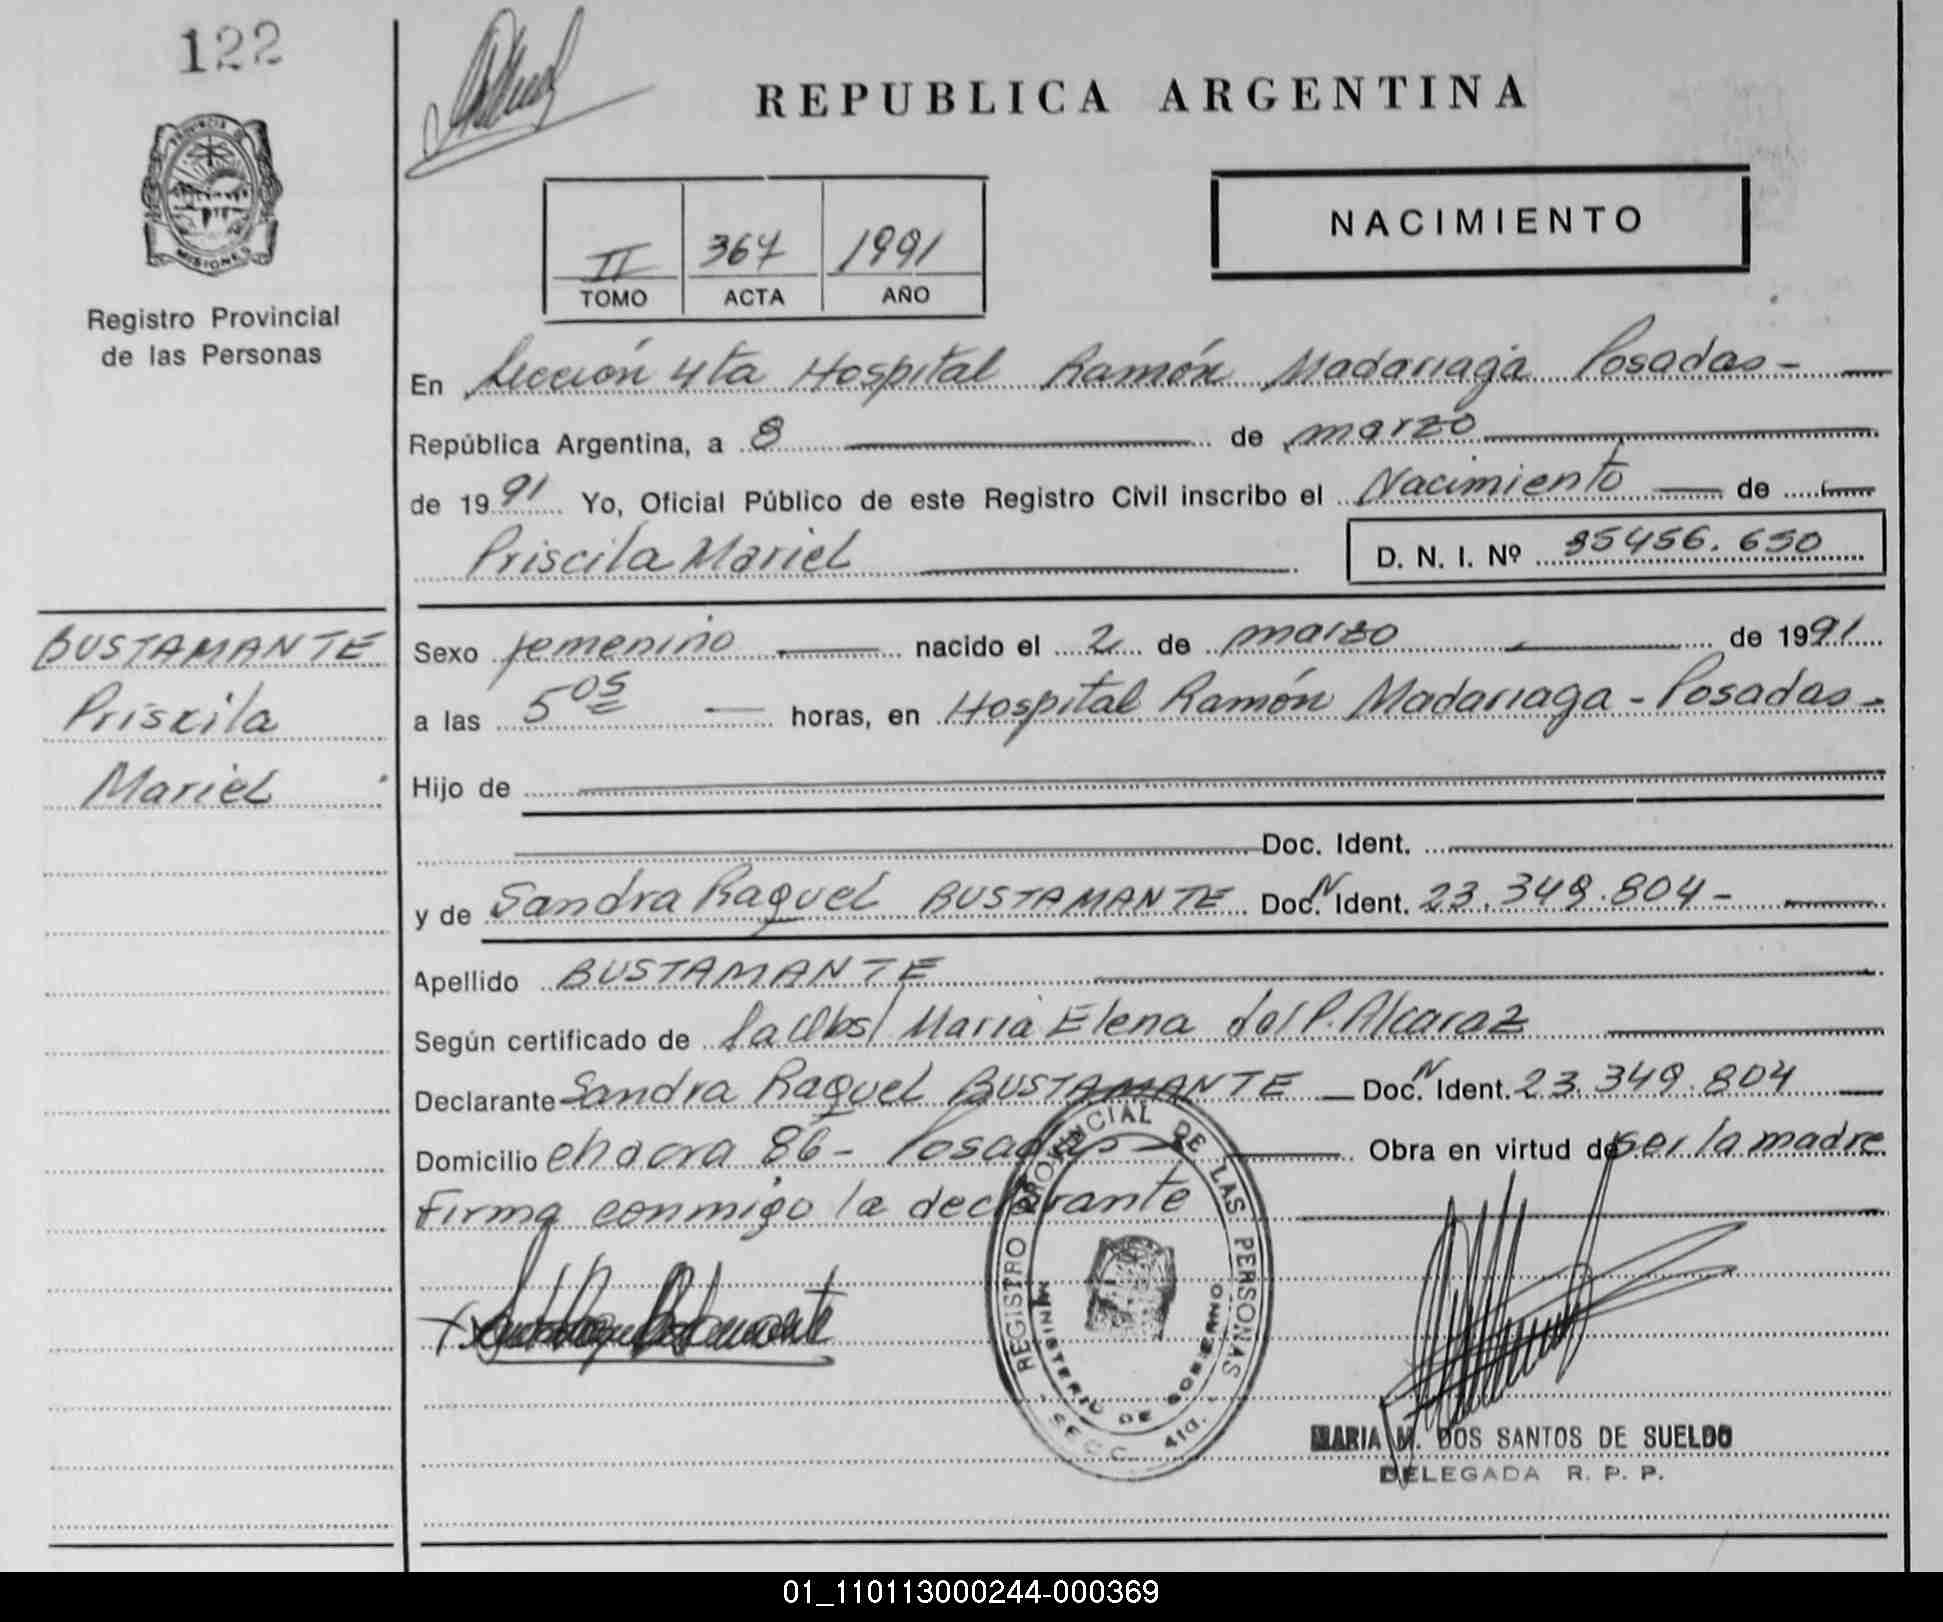 122
REPUBLICA ARGENTINA
PROVINCIA DE
MISIONES
Registro Provincial
de las Personas
II 367 1991
TOMO ACTA AÑO
NACIMIENTO
En Sección 4ta Hospital Ramón Madariaga Posadas-
República Argentina, a 8 de marzo
de 1991 Yo, Oficial Público de este Registro Civil inscribo el Nacimiento de
Priscila Mariel D. N. I. Nº 35456.650
BUSTAMANTE
Priscila
Mariel
Sexo femenino nacido el 2 de marzo de 1991
a las 5 05 horas, en Hospital Ramón Madariaga - Posadas-
Hijo de
Doc. Ident.
y de Sandra Raquel BUSTAMANTE Doc. N Ident. 23.349.804-
Apellido BUSTAMANTE
Según certificado de la Obst María Elena del P. Alcaraz
Declarante Sandra Raquel BUSTAMANTE Doc. N Ident. 23.349.804
Domicilio chacra 86- Posadas Obra en virtud de ser la madre
Firma conmigo la declarante
REGISTRO PROVINCIAL DE LAS PERSONAS
MINISTERIO DE GOBIERNO
SECC. 4ta.
MARIA M. DOS SANTOS DE SUELDO
DELEGADA R. P. P.
01_110113000244-000369